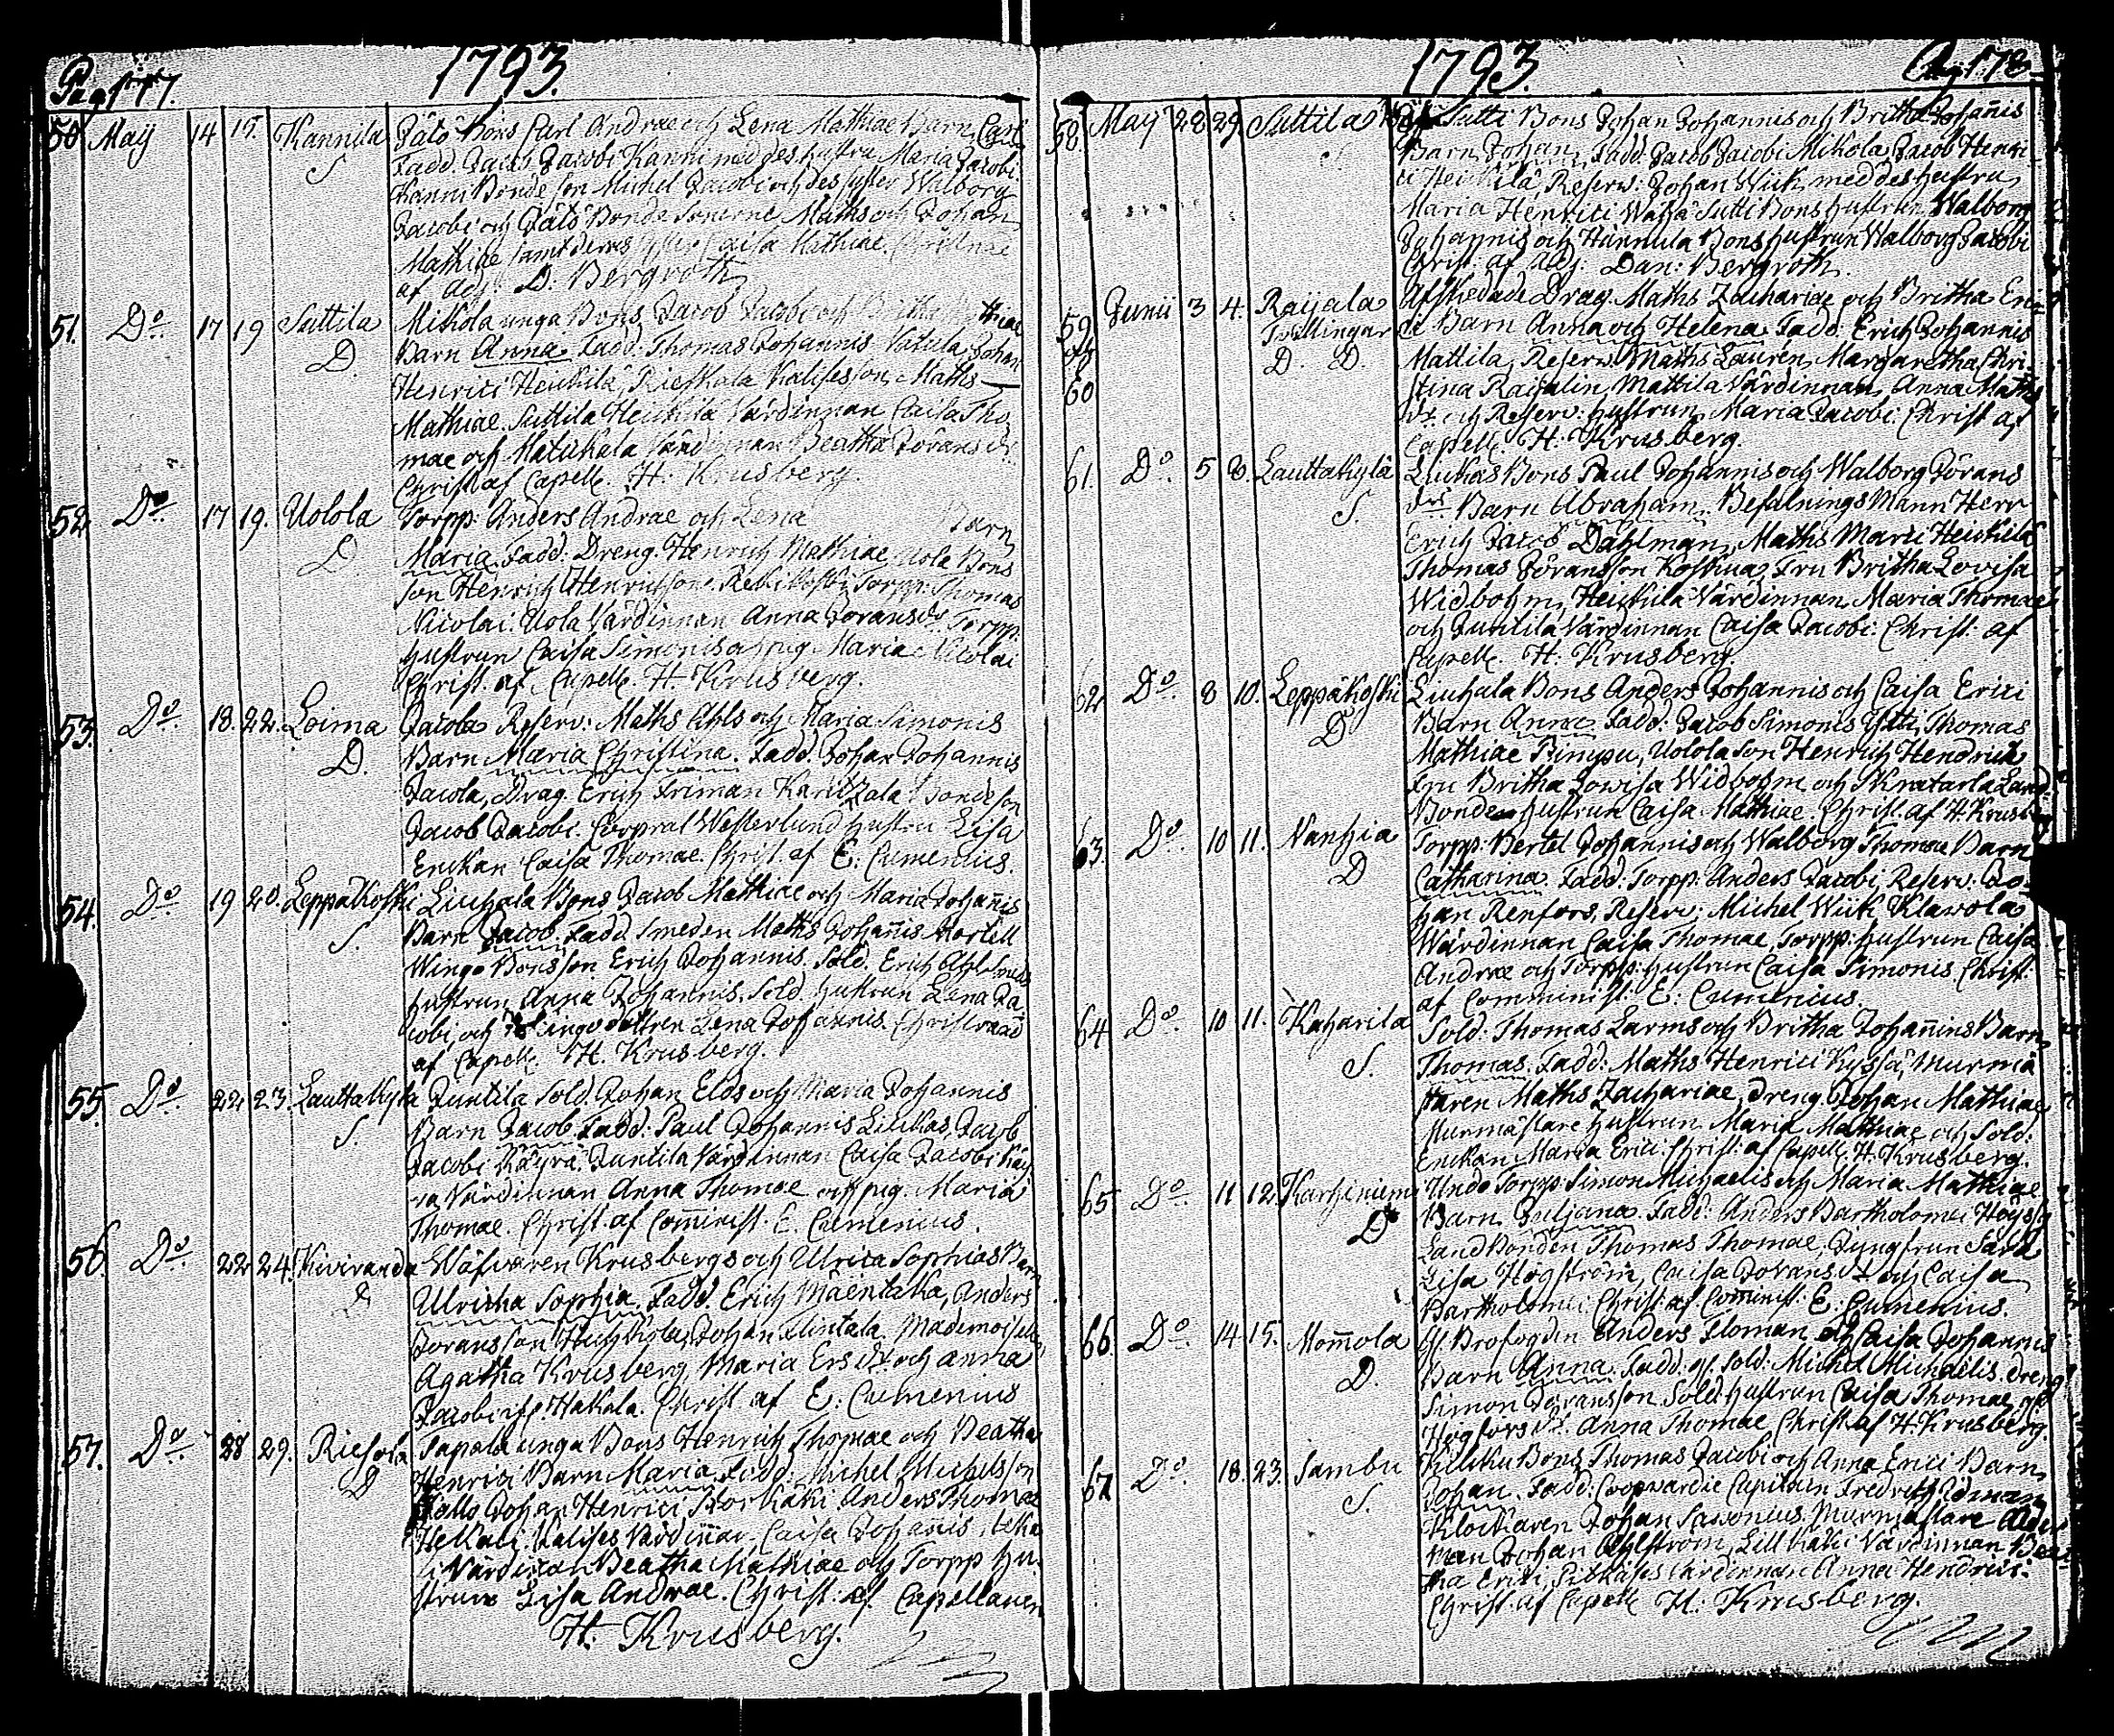 Pag 177. 1793.
50 Maij 14 15. Kannila Jätö Bons Carl Andrae och Lena Mathiae Barn Carl
S Fadd. Jacob Jacobi Kanni med des hustru Maria Jacobi
Kanni Bonde son Michel Jacobi och des syster Walborg
Jacobi och Jätö Bonde Sönerne Maths och Johan
Mathiae samt deras syster Caisa Mathiae. Christnad
af Adj: D: Bergroth
51. Do. 17 19 Suttila Mikola unga Bons Jacob Jacobi och Britha Mathiae
D. Barn Anna Fadd: Thomas Johannis Vatula, Johan
Henrici Heickilä, Rieskala Kalises son Maths
Mathiae. Suttila Heickilä Värdinnan Caisa Tho
mae och Matickala Värdinnan Beatha Jörans dr
Christ af Capell. H: Krusberg.
52. Do 17 19. Uolola Torpp: Anders Andrae och Lena Barn
D Maria. Fadd: Dreng. Henrich Mathiae, Uola Bons
son Henrich Henrichsson. Torpp: Thomas
Nicolai. Uola Värdinnan Anna Jöransdr Torpp:
hustrun Caisa Simonis och pig. Maria Nicolai
Christ. af Capell. H. Krusberg.
53. Do. 18. 22. Loima Jacola Reserv: Maths Ahls och Maria Simonis
D. Barn Maria Christina. Fadd. Johan Johannis
Jacola, Drag. Erich Friman Karitzala Bonde son
Jacob Jacobi. Corpral Westerlund hustru Lisa
Enckan Caisa Thomae. Christ. af E: Cumenius.
54. Do 19 20. Leppäkoski Liuhala Bons Jacob Mathiae och Maria Johañis
S. Barn Jacob Fadd Smeden Maths Johañis Mortell
Wingo Bonsson Erich Johannis. Sold. Erich
hustrun Anna Johannis, Sold. hustrun Lena Ja
cobi, och Lena Johannis. Christnad
af Capell. H. Krusberg.
55. Do 22 23. Lauttakylä Juntila Sold. Johan Elds och Maria Johannis
S. Barn Jacob Fadd: Paul Johannis Liuckas, Jacob
Jacobi Käyrä. Juntila Värdinnan Caisa Jacobi Käy
rä Värdinnan Anna Thomae och pig. Maria
Thomae. Christ. af Com̃inist. E. Cumenius.
56. Do 22 24. Kiviranda Wäfvaren Krusbergs och Ulrica Sophias Barn
Ulricha Sophia. Fadd. Erich Mäentaka, Anders
Joransson Johan Flintala. Mademoiselle
Agatha Krusberg, Maria Ers dr och Anna
Jacobi Hakala. Christ af E: Cumenius
57. Do 28 29. Riesola Tapola unga Bons Henrich Thomae och Beatha
D Henrici Barn Maria Fadd: Michel Michelsson
Johan Henrici Anders Thomae
Kalises Värdiñan. Caisa Johañis
Värdiñan Beatha Mathiae och Torpp hu
strun Lisa Andrae. Christ. af Capellanen
H. Krusberg.
1793. Pag 178
58. Maij 28 29. Suttila Sutti Bons Johan Johannis och Britha Johañis
S. Barn Johan. Fadd: Jacob Jacobi Mikola, Jacob Henri
ci Heickilä Reserv: Johan Wiik med des hustru
Maria Henrici Sutti Bons hustrun Walborg
Johannis och Hännula Bons hustrun Walborg Jacobi
Christ: af Adj: Dan: Bergroth.
59 Junii 3 4. Raijala Afskedade Drag. Maths Zachariae och Britha Eri
och Tvillingar ci Barn Anna och Helena Fadd: Erich Johannis
60 D. D. Mattila, Reserv. Maths Lauren, Margaretha Chri
stina Raijalin, Mattila Värdinnan, Anna Maths
dr och Reserv: hustrun Maria Jacobi. Christ af
Capell. H: Krusberg.
61. Do. 5 8. Lauttakylä Liuckas Bons Paul Johannis och Walborg Jörans
S. dr Barn Abraham. Befalnings Mann Herr
Erich Jacob Dahlman, Maths Marci Heickilä
Thomas Jöransson Koskiua, Fru Britha Lovisa
Widbohm, Heickilä Värdinnan Maria Thomae
och Juntila Värdinnan Caisa Jacobi. Christ. af
Capell. H: Krusberg.
62 Do. 8 10. Leppäkoski Liuhala Bons Anders Johannis och Caisa Erici
D Barn Anna Fadd: Jacob Simonis Thomas
Mathiae Uolola son Henrich Hendrich
Fru Britha Lowisa Widbohm och Land
Bonden hustrun Caisa Mathiae. Christ. af H: Krusberg
63. Do 10 11. Nanhia Torpp: Bertel Johannis och Walborg Thomae Barn
D Catharina. Fadd: Torpp: Anders Jacobi, Reserv: Jo
han Renfors, Reserv: Michel Wiik Klawola
Wärdinnan Caisa Thomae, Torpp: hustrun Caisa
Andrae och Torpp: hustrun Caisa Simonis Christ:
af Comminist. E: Cumenius.
64 Do 10 11. Kaharila Sold: Thomas Larms och Britha Johañnis Barn
S. Thomas. Fadd: Maths Henrici Kyssä, Murmä
staren Maths Zachariae, Dreng Johan Mathiae
Murmästare hustrun Maria Mathiae och Sold:
Enckan Maria Erici. Christ: af Capell. H. Krusberg.
65 Do 11 12. Karhiniemi Undo Torpp: Simon Michaelis och Maria Mathiae
D Barn Juliana. Fadd: Anders Bartholomei
Land Bonden Thomas Thomae, Jungfrun Sara
Lisa Högström, Caisa Jorans dr och Caisa
Bartholomei. Christ. af Com̃inist. E: Cumenius.
66. Do 14 15. Mom̃ola Gl. Brofogden Anders Floman och Caisa Johannis
D. Barn Anna. Fadd: gl. Sold: Michel Michaelis. Dreng
Simon Joransson. Sold: hustrun Caisa Thomae,
Högfors dr. Anna Thomae Christ. af H. Krusberg.
67 Do. 18. 23. Sambu Kiliku Bons Thomas Jacobi och Anna Erici Barn
S. Johan. Fadd: Coopvardie Capitain Fredrich
Klockaren Johan Saxonius. Murmästare Ålder
man Johan Ahlström, Lill Käki Värdinnan Bea
tha Erici, Värdinnan Anna Hendrici.
Christ. af Capell H: Krusberg.